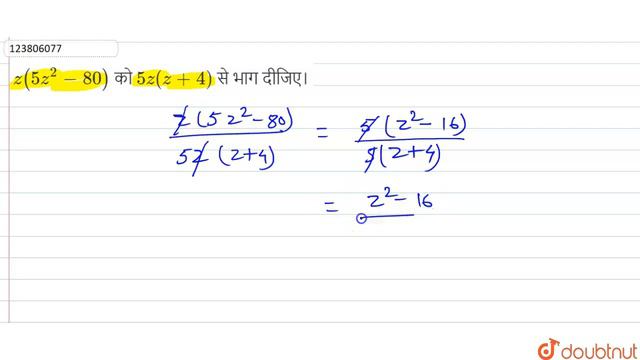 123806077
z(5z² − 80) को 5z(z + 4) से भाग दीजिए।
z(5z²−80) / 5z(z+4) = 5(z²−16) / 5(z+4)
= z²−16
doubtnut